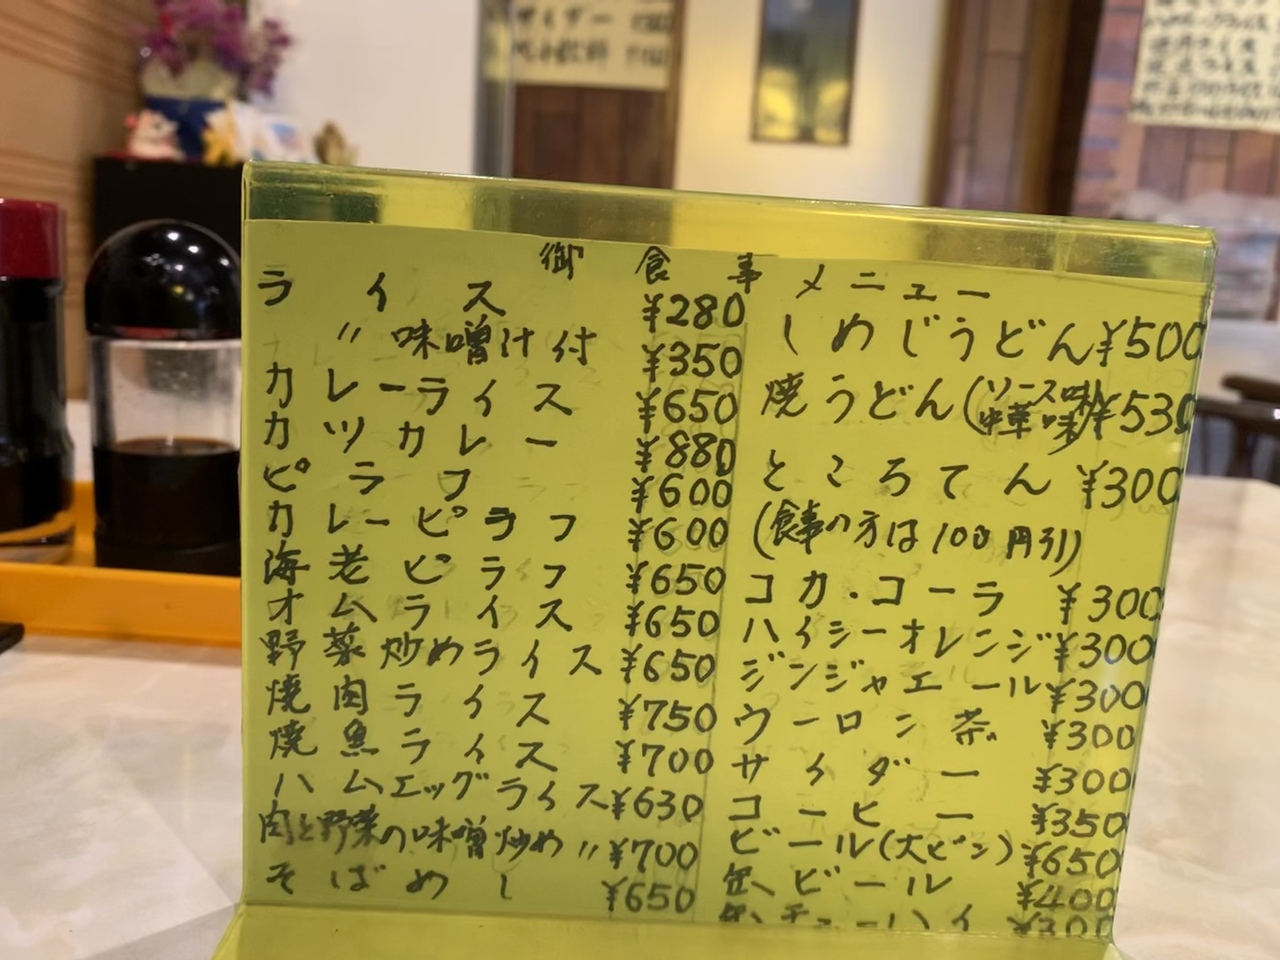 御食事メニュー
ライス ¥280
〃 味噌汁付 ¥350
カレーライス ¥650
カツカレー ¥880
ピラフ ¥600
カレーピラフ ¥600
海老ピラフ ¥650
オムライス ¥650
野菜炒めライス ¥650
焼肉ライス ¥750
焼魚ライス ¥700
ハムエッグライス ¥630
肉と野菜の味噌炒め〃 ¥700
そばめし ¥650
しめじうどん ¥500
焼うどん(ソース味 中華味) ¥530
ところてん ¥300
(食事の方は100円引)
コカ・コーラ ¥300
ハイシーオレンジ ¥300
ジンジャエール ¥300
ウーロン茶 ¥300
サイダー ¥300
コーヒー ¥350
ビール(大ビン) ¥650
缶、ビール ¥400
缶、チューハイ ¥300